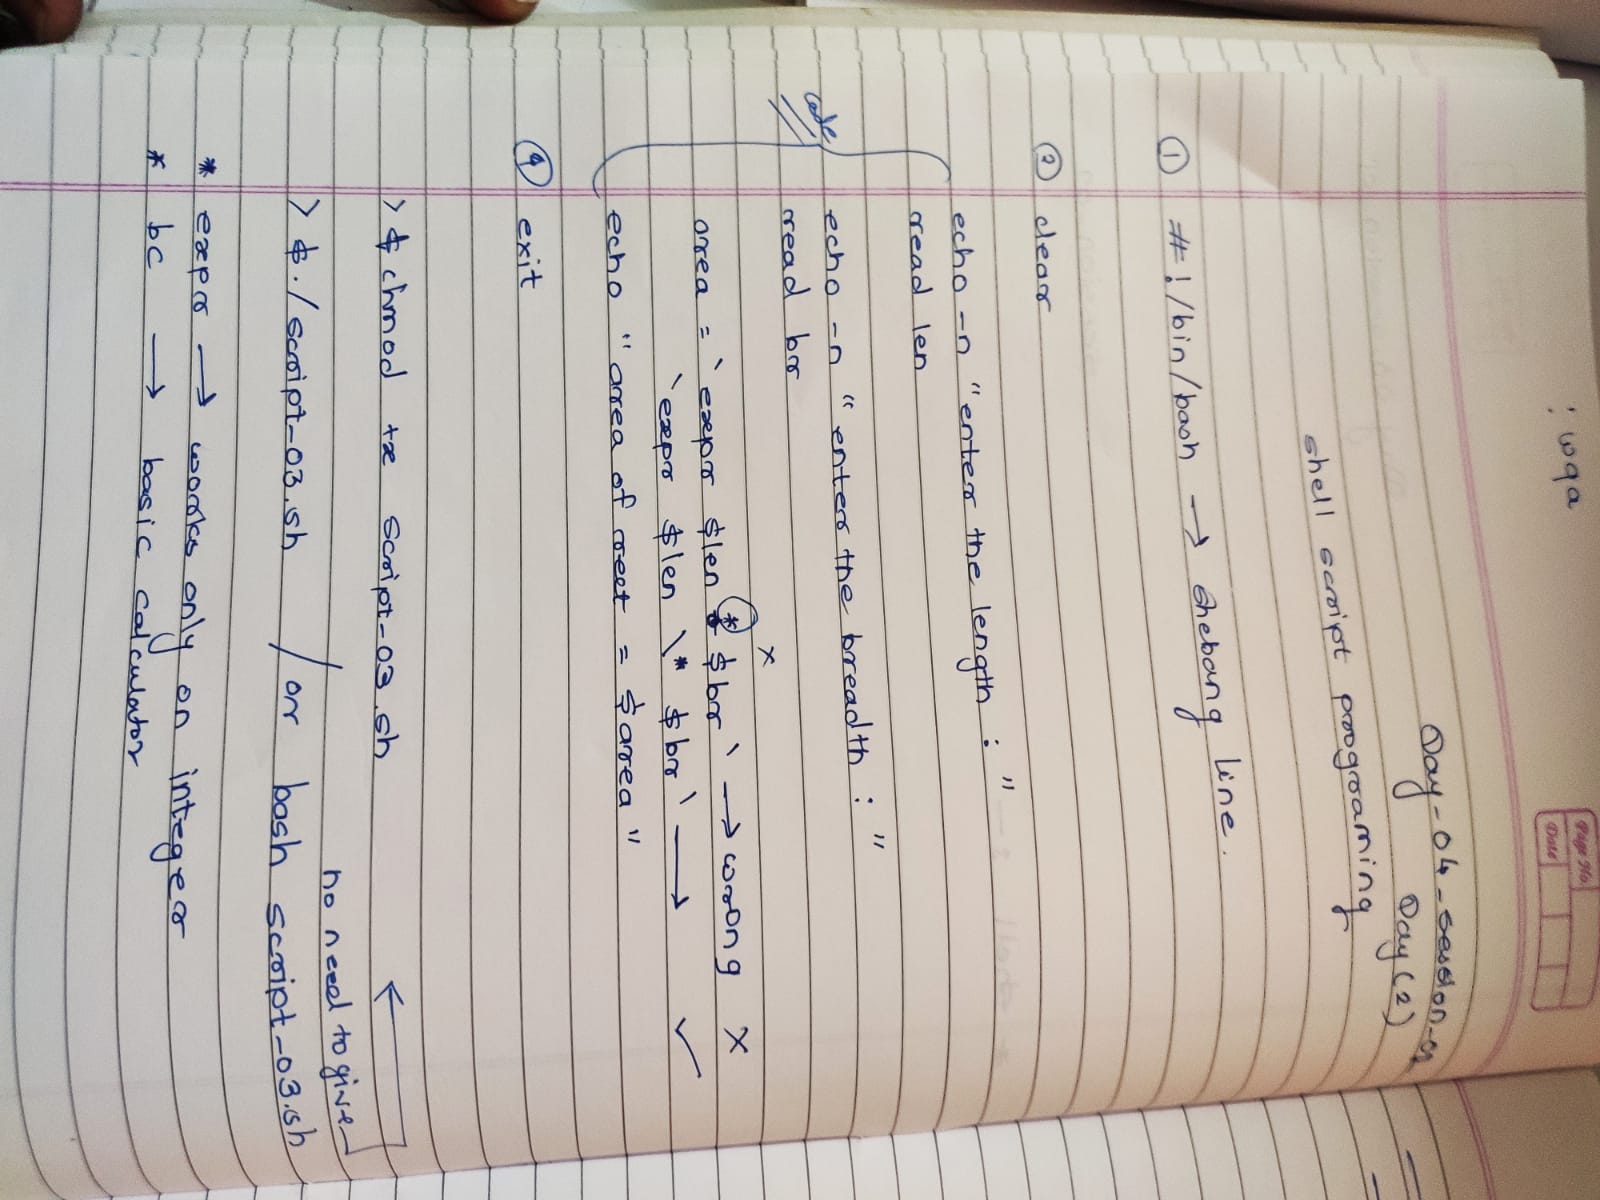 : wqa
Page No.
Date
Day-04-session-02
Day (2)
shell script programing
① #!/bin/bash → shebang line.
② clear
echo -n "enter the length : "
read len
echo -n "enter the breadth : "
code
read br
x
area = `expr $len * $br` → wrong X
`expr $len \* $br` → ✓
echo "area of rect = $area"
④ exit
> $ chmod +x script-03.sh ←
no need to give
> $ ./script-03.sh / or bash script-03.sh
* expr → works only on integer
* bc → basic calculator